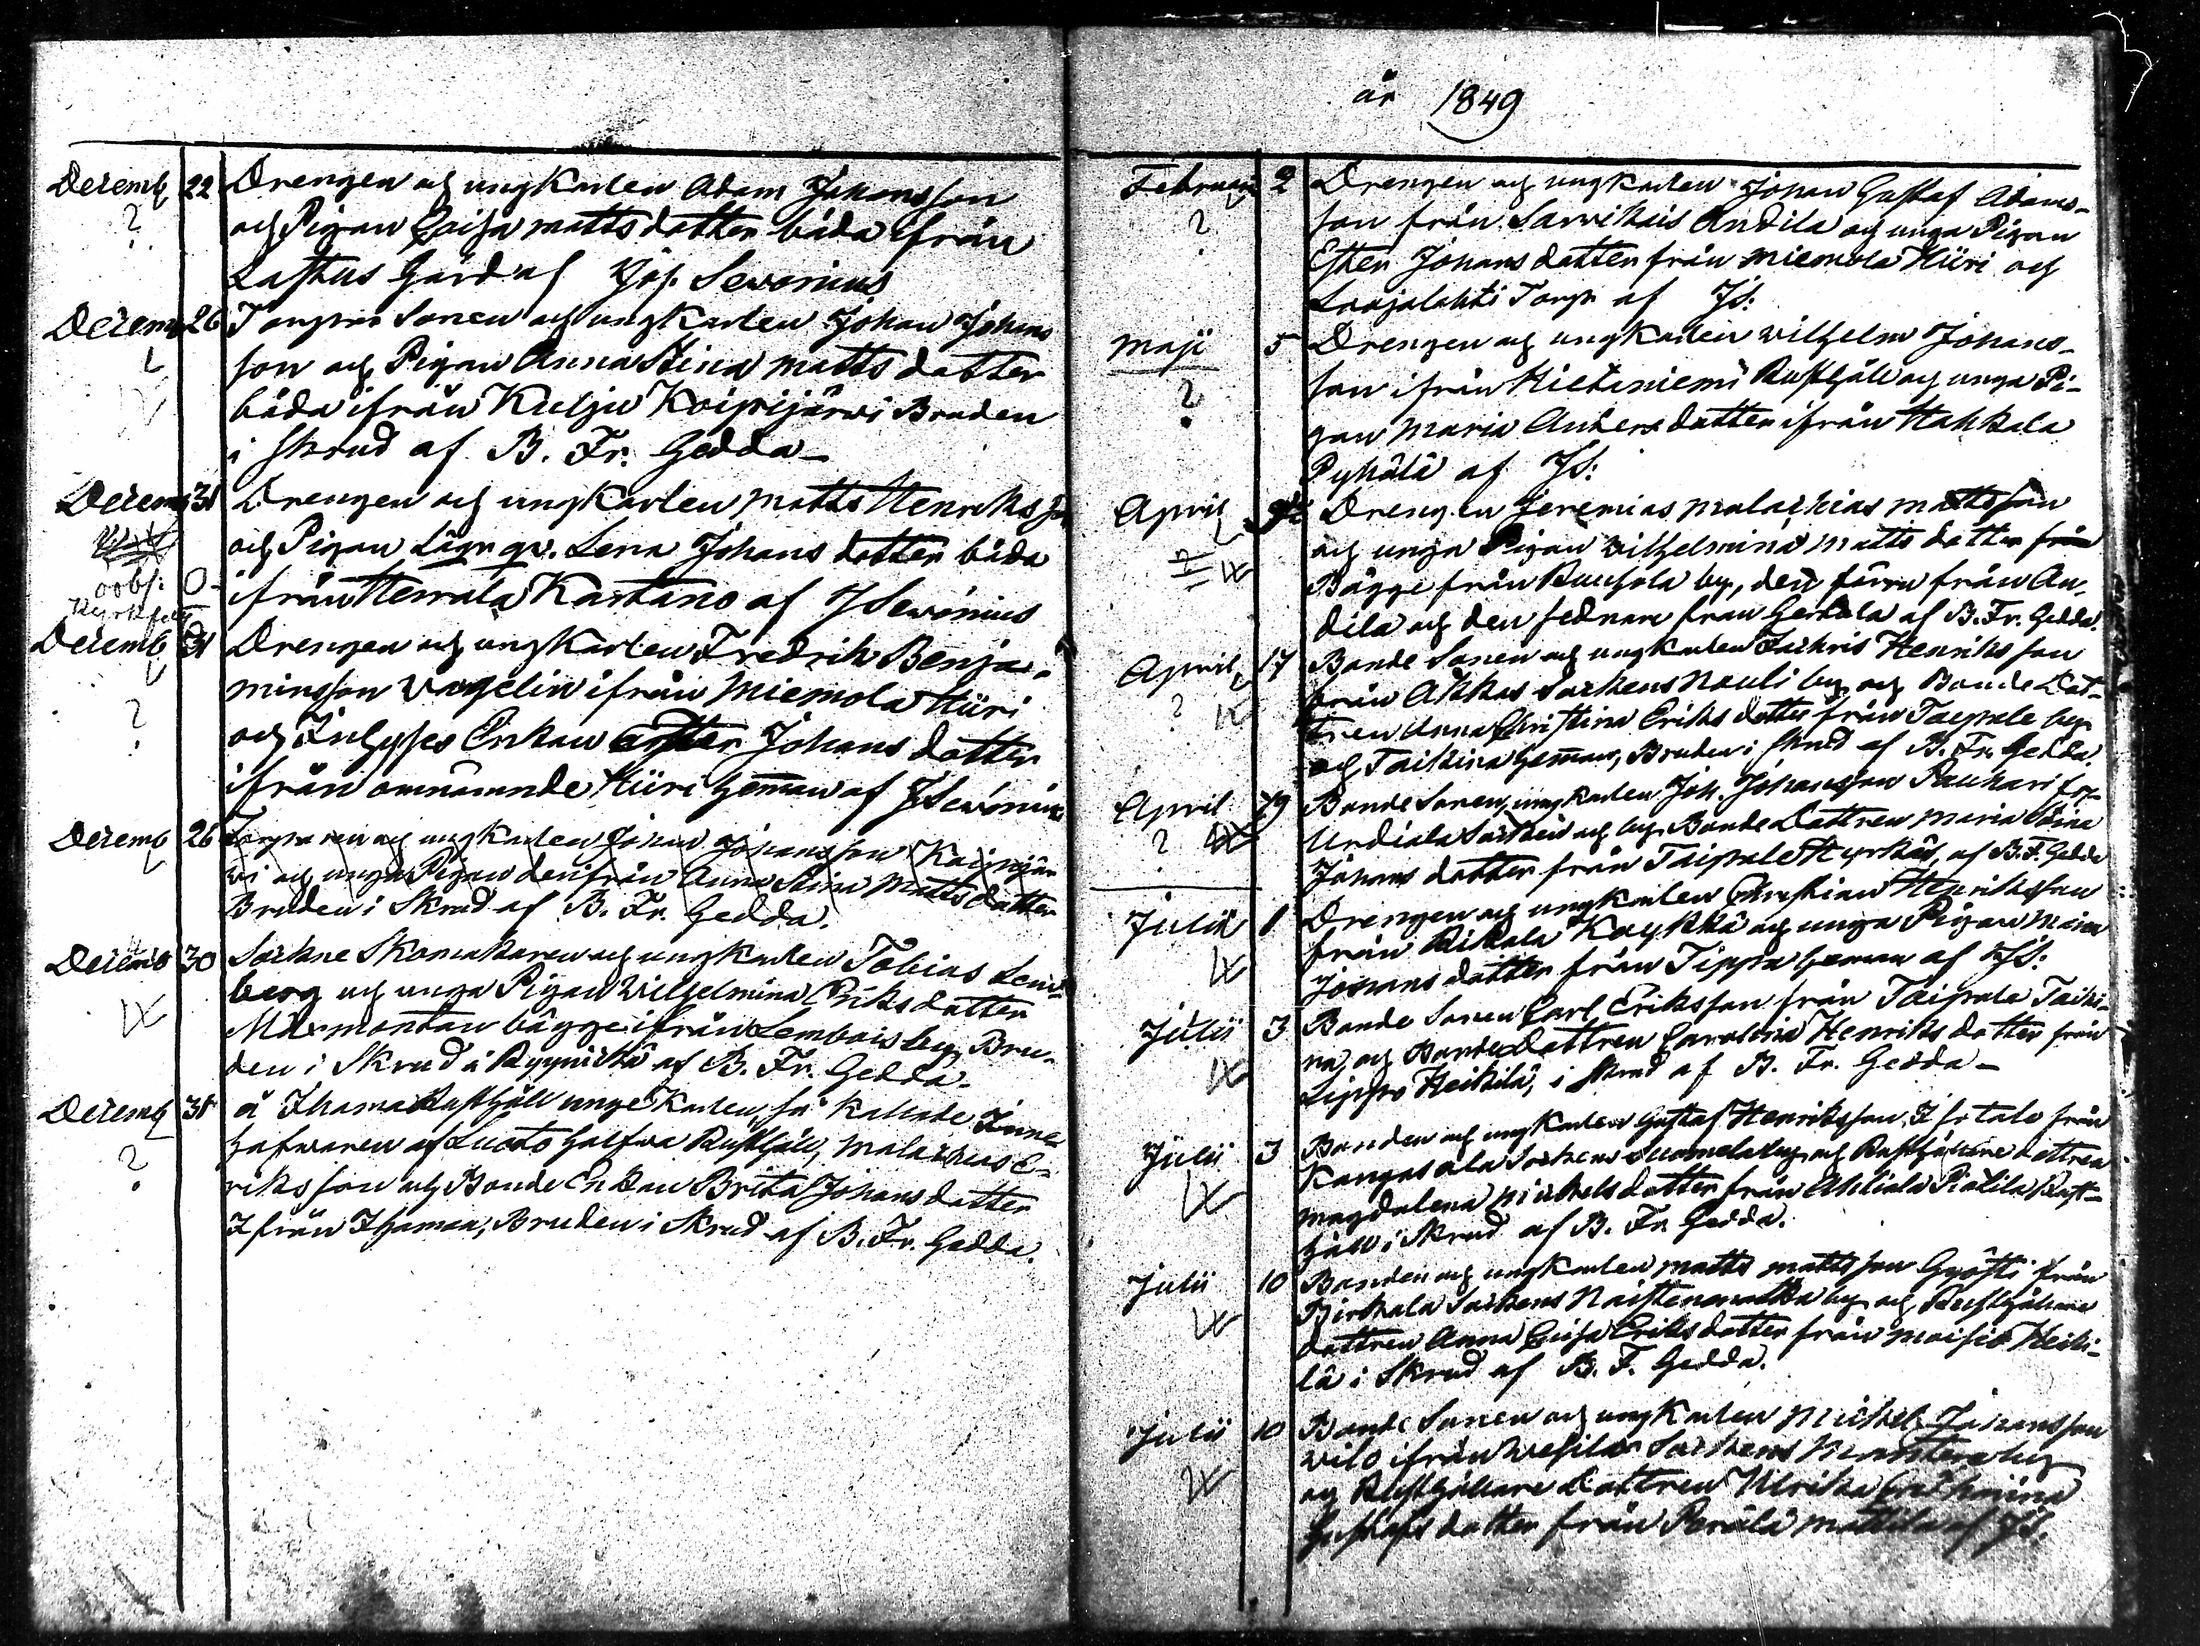 Decemb 22 Drengen och ungkarlen Adam Johansson
och Pigan Caisa Matts dotter båda ifrån
Lastus Gård af Joh. Sevonius
Decemb 26 Torpare Sonen och ungkarlen Johan Johans
son och Pigan Anna Stina Matts dotter
båda ifrån Kulju Koipijärvi Bruden
i Skrud af B. Fr. Gedda
Decemb 31 Drengen och ungkarlen Matts Henriksson
och Pigan Lägr. qv. Lena Johans dotter båda
oobs: 0
ifrån Herrala Kartano af J Sevonius
Decemb 31 Drengen och ungkarlen Fredrik Benja-
minsson ifrån Miemola Hiiri
?
och Inhyses Enkan Ester Johans dotter
ifrån omnämnde Hiiri heman af J Sevonius
Decemb 26 Torparen och ungkarlen Johan Johansson Koipijär
vi och unga Pigan derifrån Anna Stina Matts dotter
Bruden i Skrud af B. Fr. Gedda.
Decemb 30 Sockne Skomakaren och ungkarlen Tobias Lind-
berg och unga Pigan Wilhelmina Eriks dotter
bägge ifrån Lembois by, Bru-
den i Skrud å af B. Fr. Gedda
Decemb 31 å Rusthåll unge Karlen, så kallade Inne
hafwaren af halfwa Rusthåll, Malachias E-
?
riksson och Bonde Enkan Brita Johans dotter
Ifrån Bruden i Skrud af B. Fr. Gedda.
år 1849
Februari 2 Drengen och ungkarlen Johan Gustaf Adams-
?
son från Sarvikais Andila och unga Pigan
Ester Johans dotter från Miemola Hiiri och
Laajalahti Torp af JS:
Maji 5 Drengen och ungkarlen Wilhelm Johans-
?
son ifrån Hietaniemi Rusthåll och unga Pi-
gan Maria Anders dotter ifrån Hakkala
Pyhälä af JS:
April Drengen Jeremias Malachias Mattsson
och unga Pigan Wilhelmina Matts dotter
Bägge från by, den förra från An-
dila och den sednare från af B. Fr. Gedda.
April 17 Bonde Sonen och ungkarlen Zachris Henriksson
?
från Akkas Sockens Nauli by och Bonde Dot-
tren Anna Christina Eriks dotter från Taipale by
och Taikina heman, Bruden i Skrud af B. Fr. Gedda.
April 19 Bonde Sonen, ungkarlen Joh. Johansson
?
Urdiala Socken och by Bonde Dottren Maria Stina
Johans dotter från Taipale Hyrkäs, af B. F. Gedda
Julii 1 Drengen och ungkarlen Christian Henriksson
från Rikala Köykkä och unga Pigan Maria
Johans dotter från Tippa heman af JS:
Julii 3 Bonde Sonen Carl Eriksson från Taipale Taiki-
na, och Bonde Dottren Carolina Henriks dotter från
Lippo Heikilä, i Skrud af B. Fr. Gedda
Julii 3 Bonden och ungkarlen Gustaf Henriksson Isotalo från
Kangasala Sockens Suomela by och Rusthållare dottren
Magdalena Michels dotter från Ahtiala Rust-
håll i Skrud af B. Fr. Gedda.
Julii 10 Bonden och ungkarlen Matts Mattsson från
Birkala Sockens Naistenmatka by och Rusthållare
dottren Anna Caisa Eriks dotter från Moisio Heiki-
lä i Skrud af B. F. Gedda.
Julii 10 Bonde Sonen och ungkarlen Michel Johansson
Wilo ifrån Wesilax Sockens by
och Rusthållare Dottren Ulrika
Gustafs dotter från Perälä Mattila af JS.